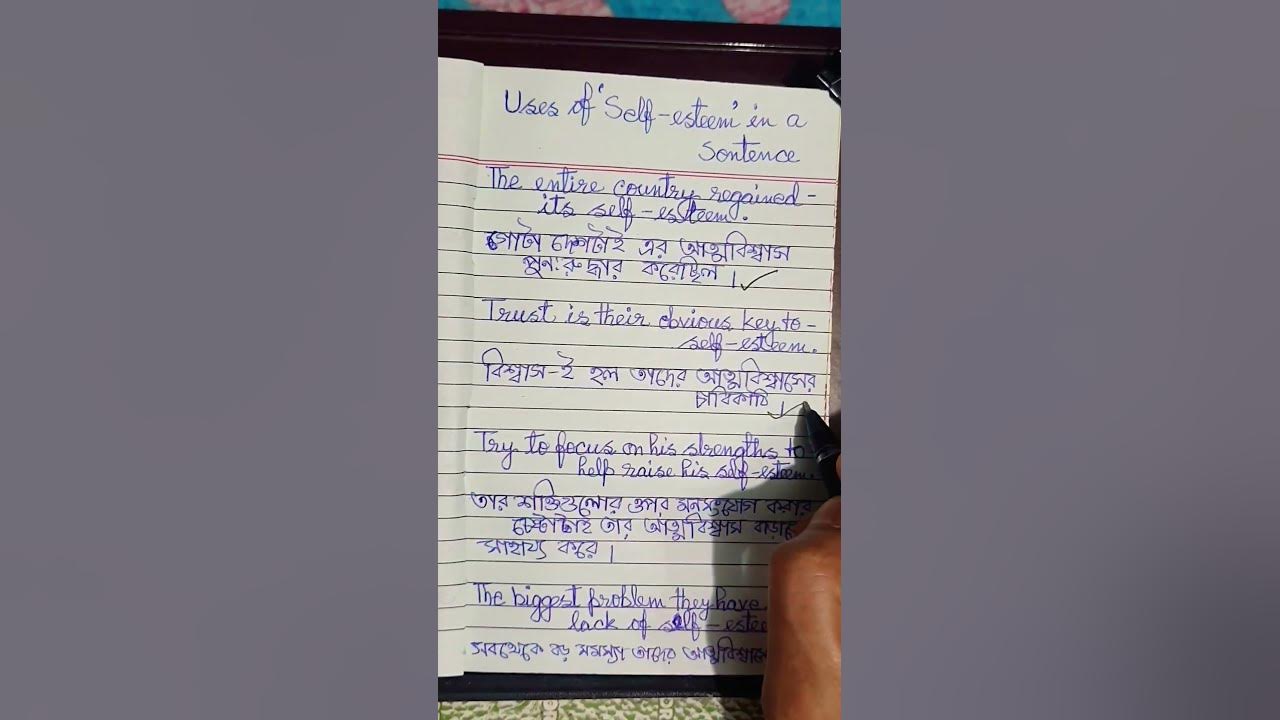 Uses of 'Self-esteem' in a
Sentence
The entire country regained-
its self-esteem.
গোটা দেশটাই এর আত্মবিশ্বাস
পুন:রুদ্ধার করেছিল।
Trust is their obvious key to-
self-esteem.
বিশ্বাস-ই হল তাদের আত্মবিশ্বাসের
চাবিকাঠি।
Try to focus on his strengths to
help raise his self-esteem.
তার শক্তিগুলোর ওপর মনসংযোগ করার
চেষ্টাটাই তার আত্মবিশ্বাস
সাহায্য করে।
The biggest problem they have
lack of self-
সবথেকে বড় সমস্যা তাদের